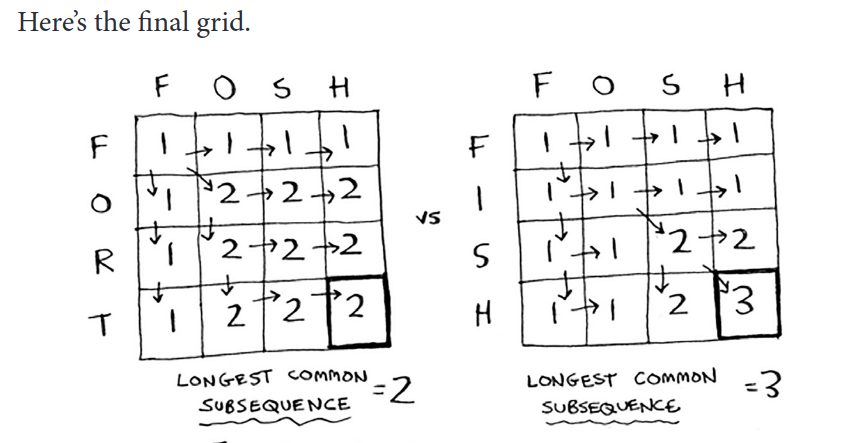 Here's the final grid.
F O S H
F 1 →1 →1 →1
O 1 2 →2 →2
R 1 2 →2 →2
T 1 2 →2 →2
LONGEST COMMON
SUBSEQUENCE =2
vs
F O S H
F 1 →1 →1 →1
I 1 →1 →1 →1
S 1 →1 2 →2
H 1 →1 2 3
LONGEST COMMON
SUBSEQUENCE =3